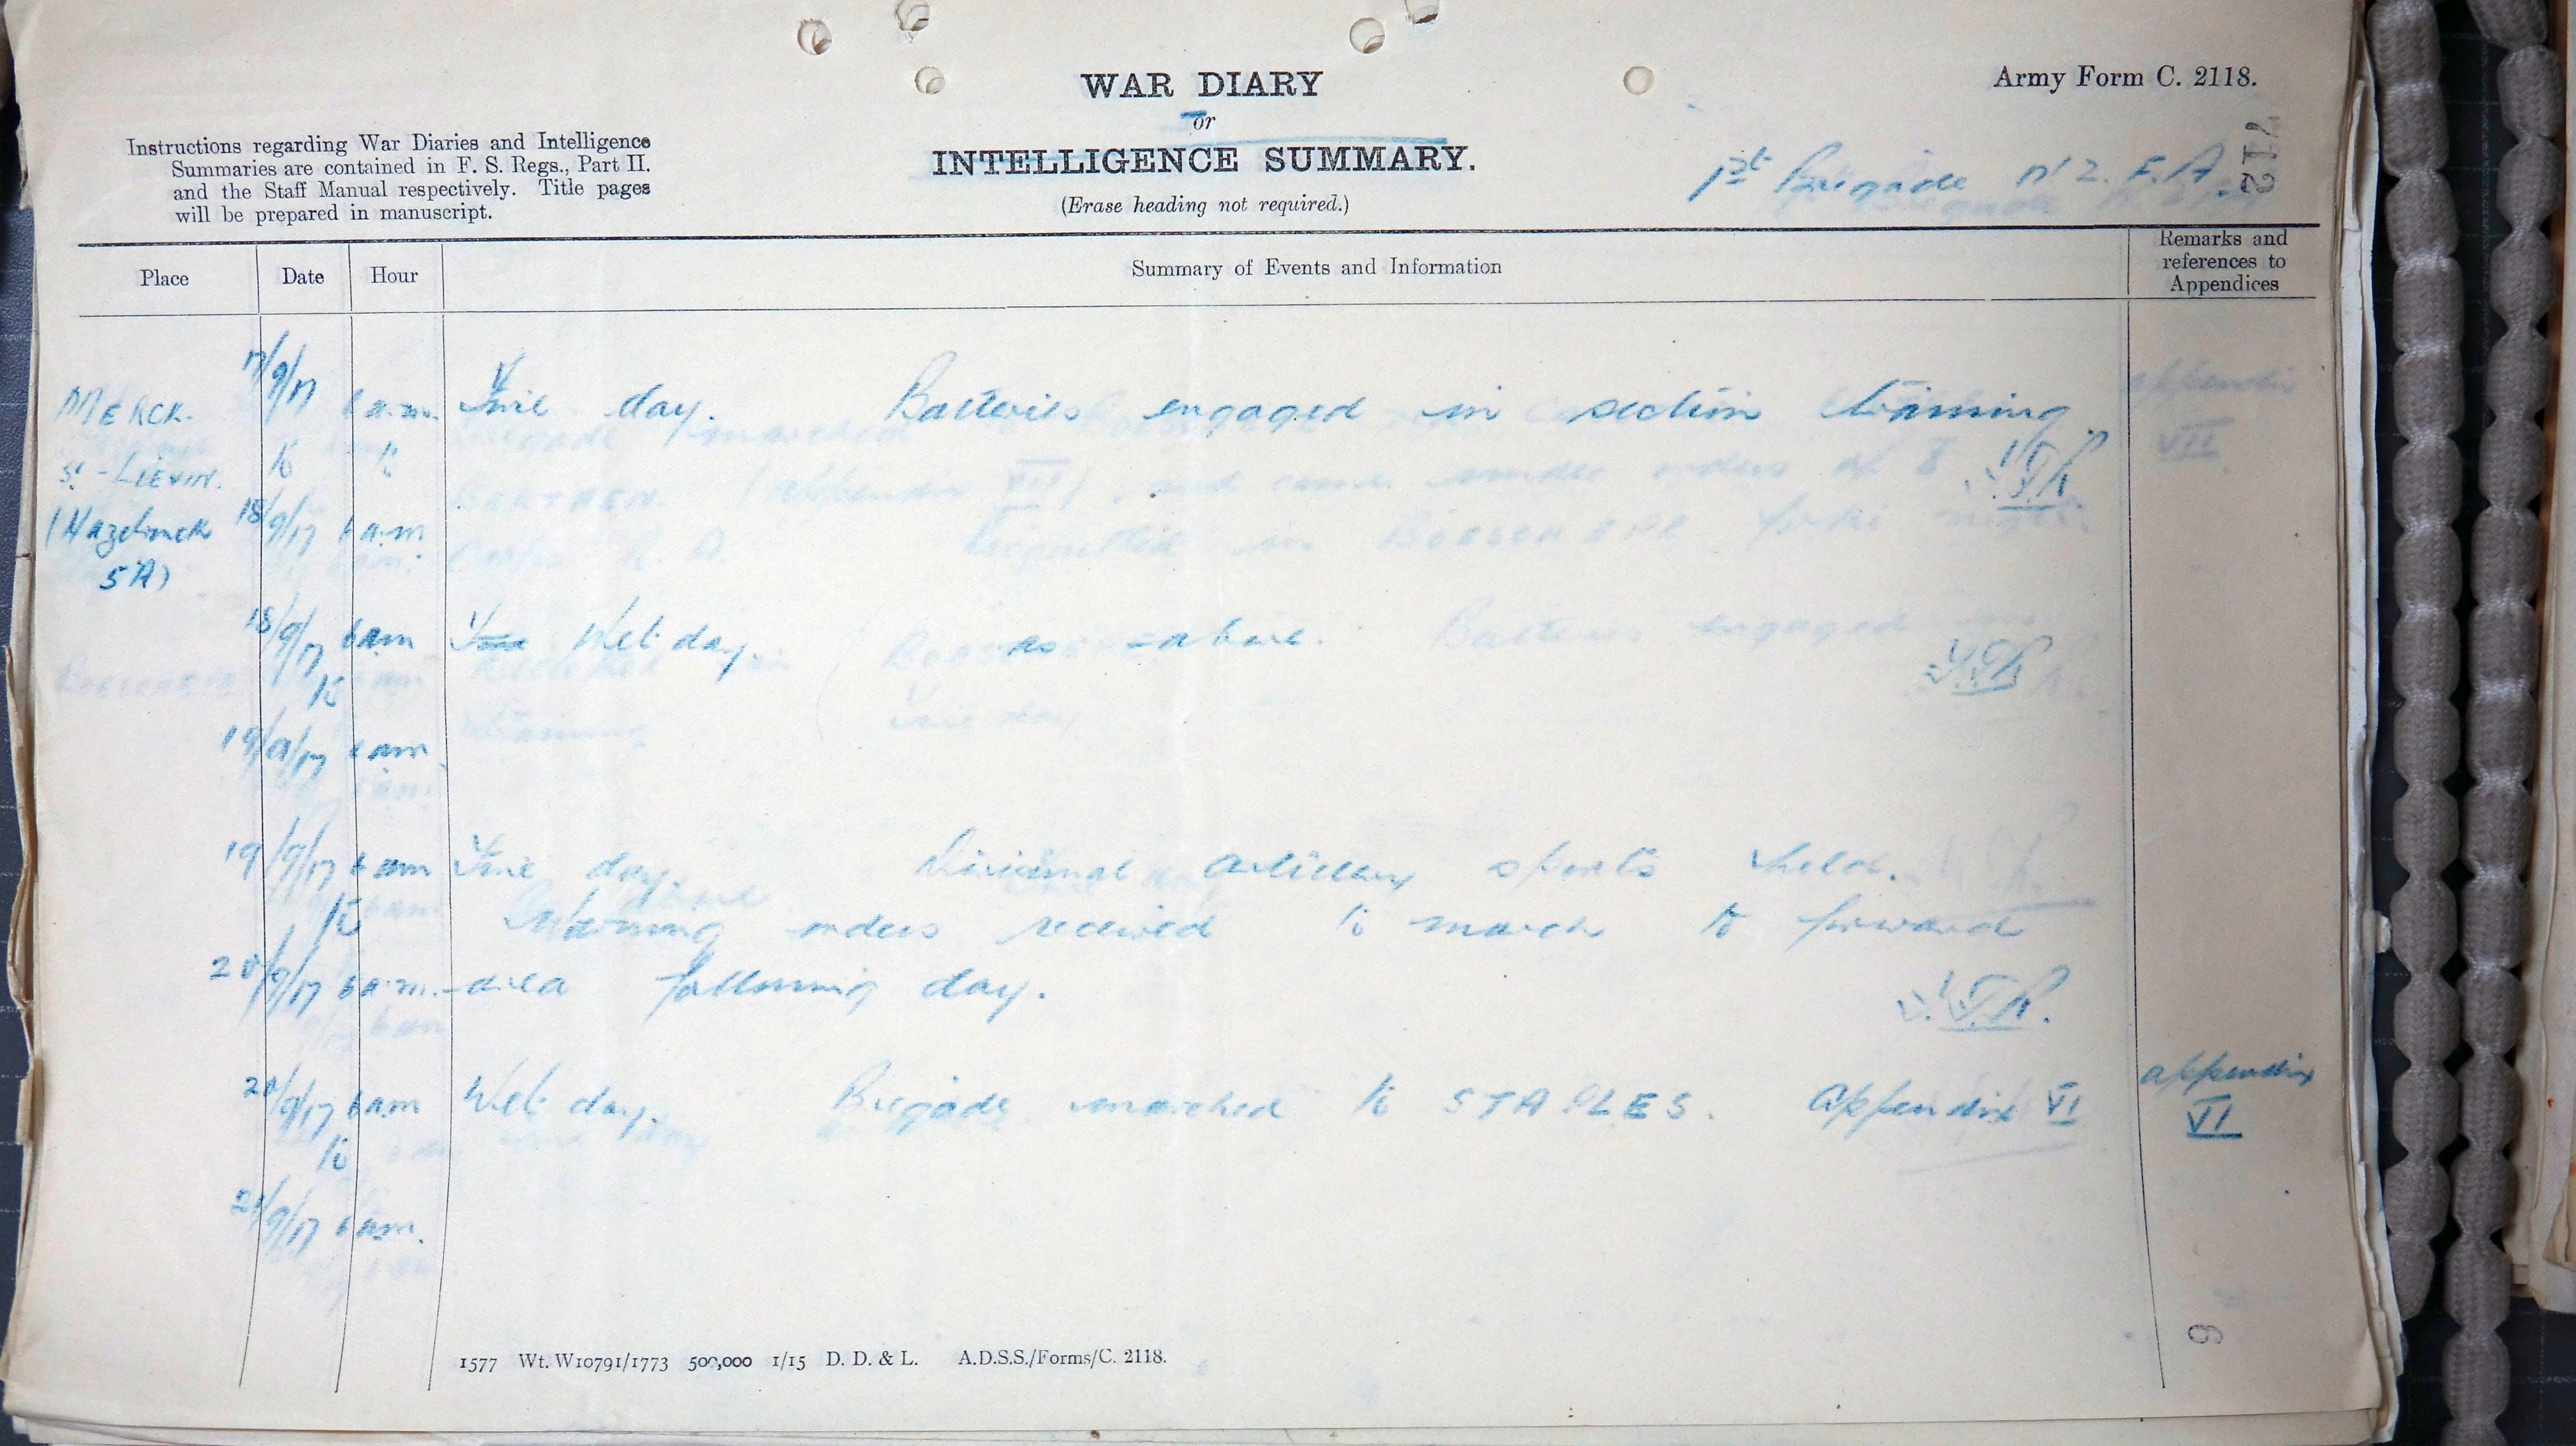 WAR DIARY
or
INTELLIGENCE SUMMARY.
(Erase heading not required.)
Army Form C. 2118.
Instructions regarding War Diaries and Intelligence
Summaries are contained in F. S. Regs., Part II.
and the Staff Manual respectively. Title pages
will be prepared in manuscript.
1st Brigade N.Z.F.A.
712
Place Date Hour Summary of Events and Information Remarks and references to Appendices
MERCK- 17/9/17 6 a.m. Fine day. Batteries engaged in section training.
St-LIEVIN. to to
(Hazebrouck 18/9/17 6 a.m.
5A)
18/9/17 6 am Fine Wet day. as above.
to
19/9/17 6 am.
19/9/17 6 am Fine day. Divisional artillery sports held.
to Warning orders received to march to forward
20/9/17 6 a.m. area following day.
20/9/17 6 am Wet day. Brigade marched to STAPLES. Appendix VI appendix VI
to
21/9/17 6 am.
1577 Wt. W10791/1773 500,000 1/15 D. D. & L. A.D.S.S./Forms/C. 2118.
6